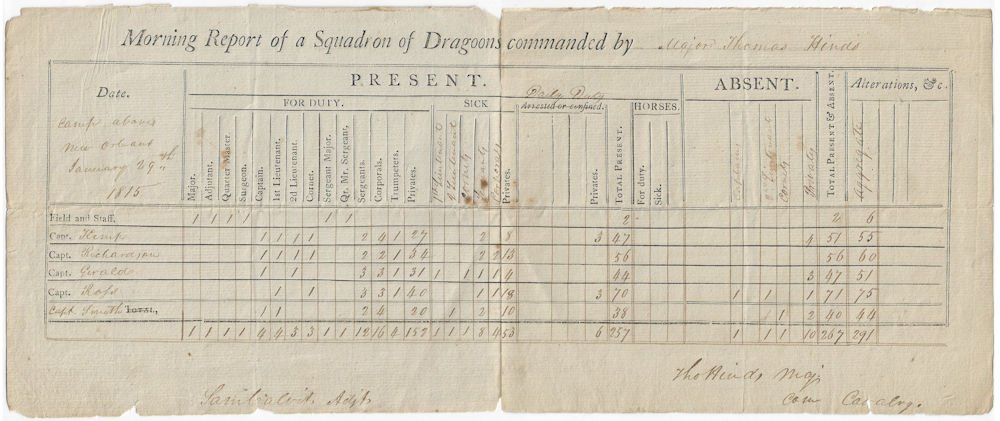 Morning Report of a Squadron of Dragoons commanded by Major Thomas Hinds
Date.
PRESENT.
ABSENT.
TOTAL PRESENT & ABSENT.
Alterations, &c.
FOR DUTY.
SICK
Daily Duty
Arrested or confined.
HORSES.
Camp above
New Orleans
January 29th
1815
Major.
Adjutant.
Quarter Master.
Surgeon.
Captain.
1st Lieutenant.
2d Lieutenant.
Cornet.
Sergeant Major.
Qtr. Mr. Sergeant.
Sergeants.
Corporals.
Trumpeters.
Privates.
Privates.
Privates.
TOTAL PRESENT.
For duty.
Sick.
Aggregate
Field and Staff. 1 1 1 1 1 1 2 2 6
Capt. Kemp 1 1 1 1 2 4 1 27 2 8 3 47 4 51 55
Capt. Richardson 1 1 1 1 2 2 1 34 2 2 13 56 56 60
Capt. Gerald 1 1 3 3 1 31 1 1 1 1 4 44 3 47 51
Capt. Ross 1 1 3 3 1 40 1 1 18 3 70 1 1 1 71 75
Capt. Smith TOTAL, 1 1 2 4 20 1 2 10 38 1 1 2 40 44
1 1 1 1 4 4 3 3 1 1 12 16 4 152 1 1 8 4 53 6 257 1 1 1 10 267 291
Tho Hinds Maj
Com Cavalry.
Sam Calvit Adjt